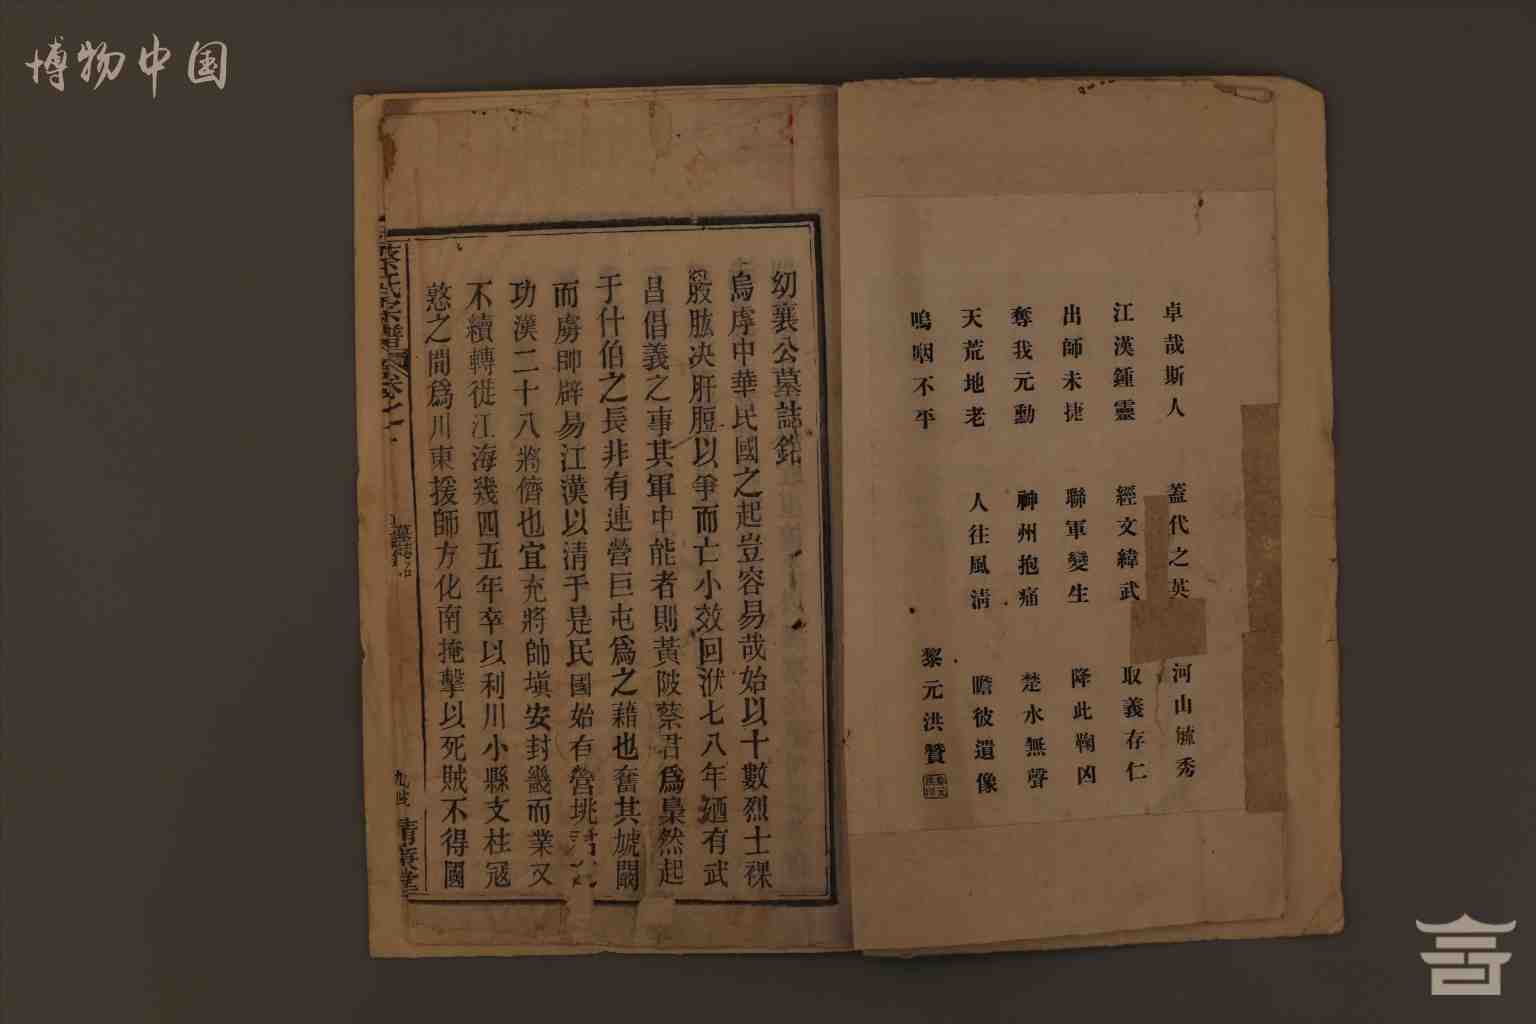 博物中国
卓哉斯人 蓋代之英 河山毓秀
江漢鍾靈 經文緯武 取義存仁
出師未捷 聯軍變生 降此鞠凶
奪我元勳 神州抱痛 楚水無聲
天荒地老 人往風淸 瞻彼遺像
嗚咽不平 黎元洪贊
幼襄公墓誌銘
烏虖中華民國之起豈容易哉始以十數烈士裸
股肱决肝脰以爭而亡小效回洑七八年廼有武
昌倡義之事其軍中能者則黃陂蔡君爲梟然起
于什伯之長非有連營巨屯爲之藉也奮其虓闞
而虜帥辟易江漢以清于是民國始有營垗
功漢二十八將儕也宜充將帥塡安封畿而業又
不續轉徙江海幾四五年卒以利川小縣支柱寇
憝之間爲川東援師方化南掩擊以死賊不得國
蔡氏宗譜 卷之
墓誌銘
清廉堂